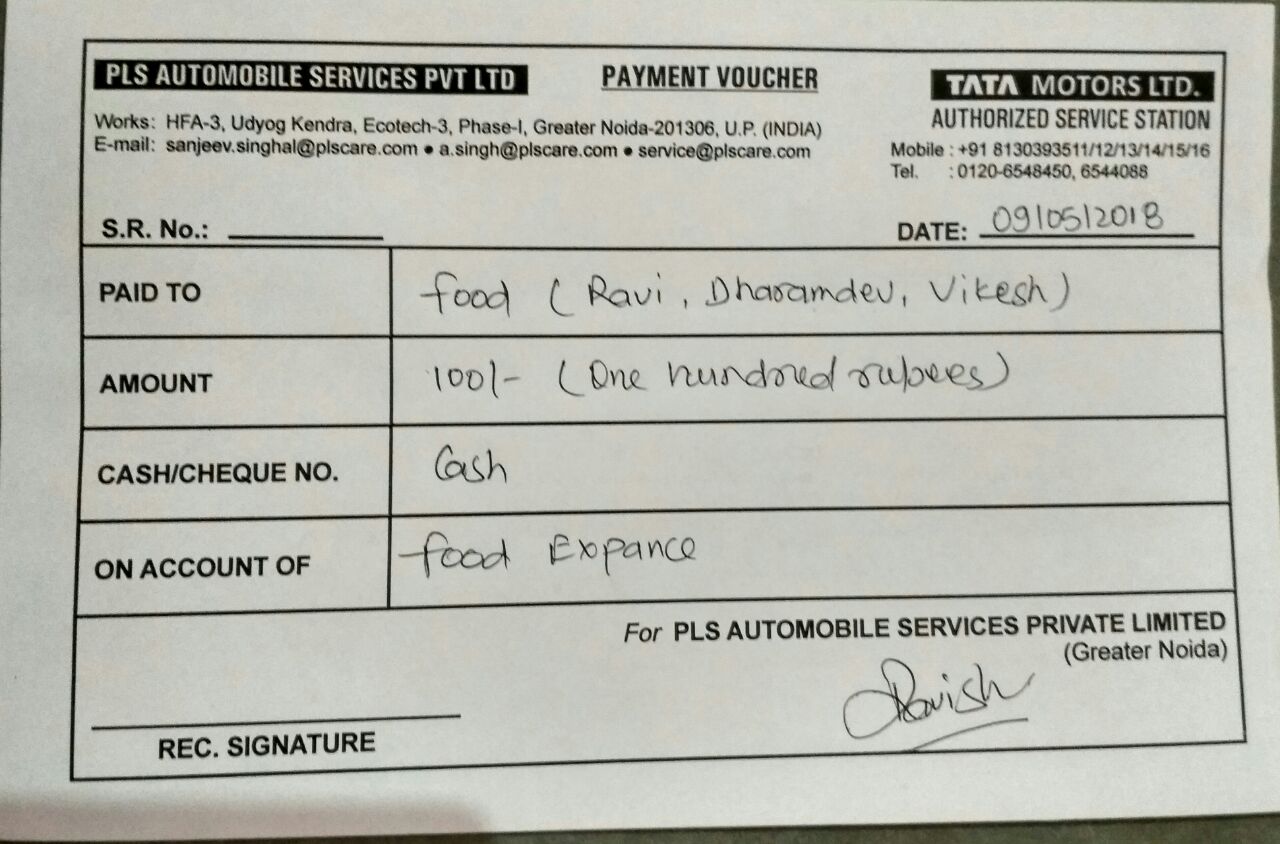 PLS AUTOMOBILE SERVICES PVT LTD
PAYMENT VOUCHER
TATA MOTORS LTD.
AUTHORIZED SERVICE STATION
Works: HFA-3, Udyog Kendra, Ecotech-3, Phase-I, Greater Noida-201306, U.P. (INDIA)
E-mail: sanjeev.singhal@plscare.com • a.singh@plscare.com • service@plscare.com
Mobile : +91 8130393511/12/13/14/15/16
Tel. : 0120-6548450, 6544088
S.R. No.:
DATE: 09/05/2018
PAID TO food (Ravi, Dharamdev, Vikesh)
AMOUNT 100/- (One hundred rupees)
CASH/CHEQUE NO. Cash
ON ACCOUNT OF food Expance
For PLS AUTOMOBILE SERVICES PRIVATE LIMITED
(Greater Noida)
Ravish
REC. SIGNATURE